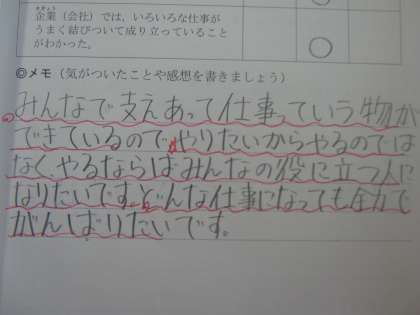 企業（会社）では、いろいろな仕事が
うまく結びついて成り立っていること
がわかった。
◎メモ（気がついたことや感想を書きましょう）
みんなで支えあって仕事っていう物が
できているのでやりたいからやるのでは
なく、やるならばみんなの役に立つ人に
なりたいです。どんな仕事になっても全力で
がんばりたいです。